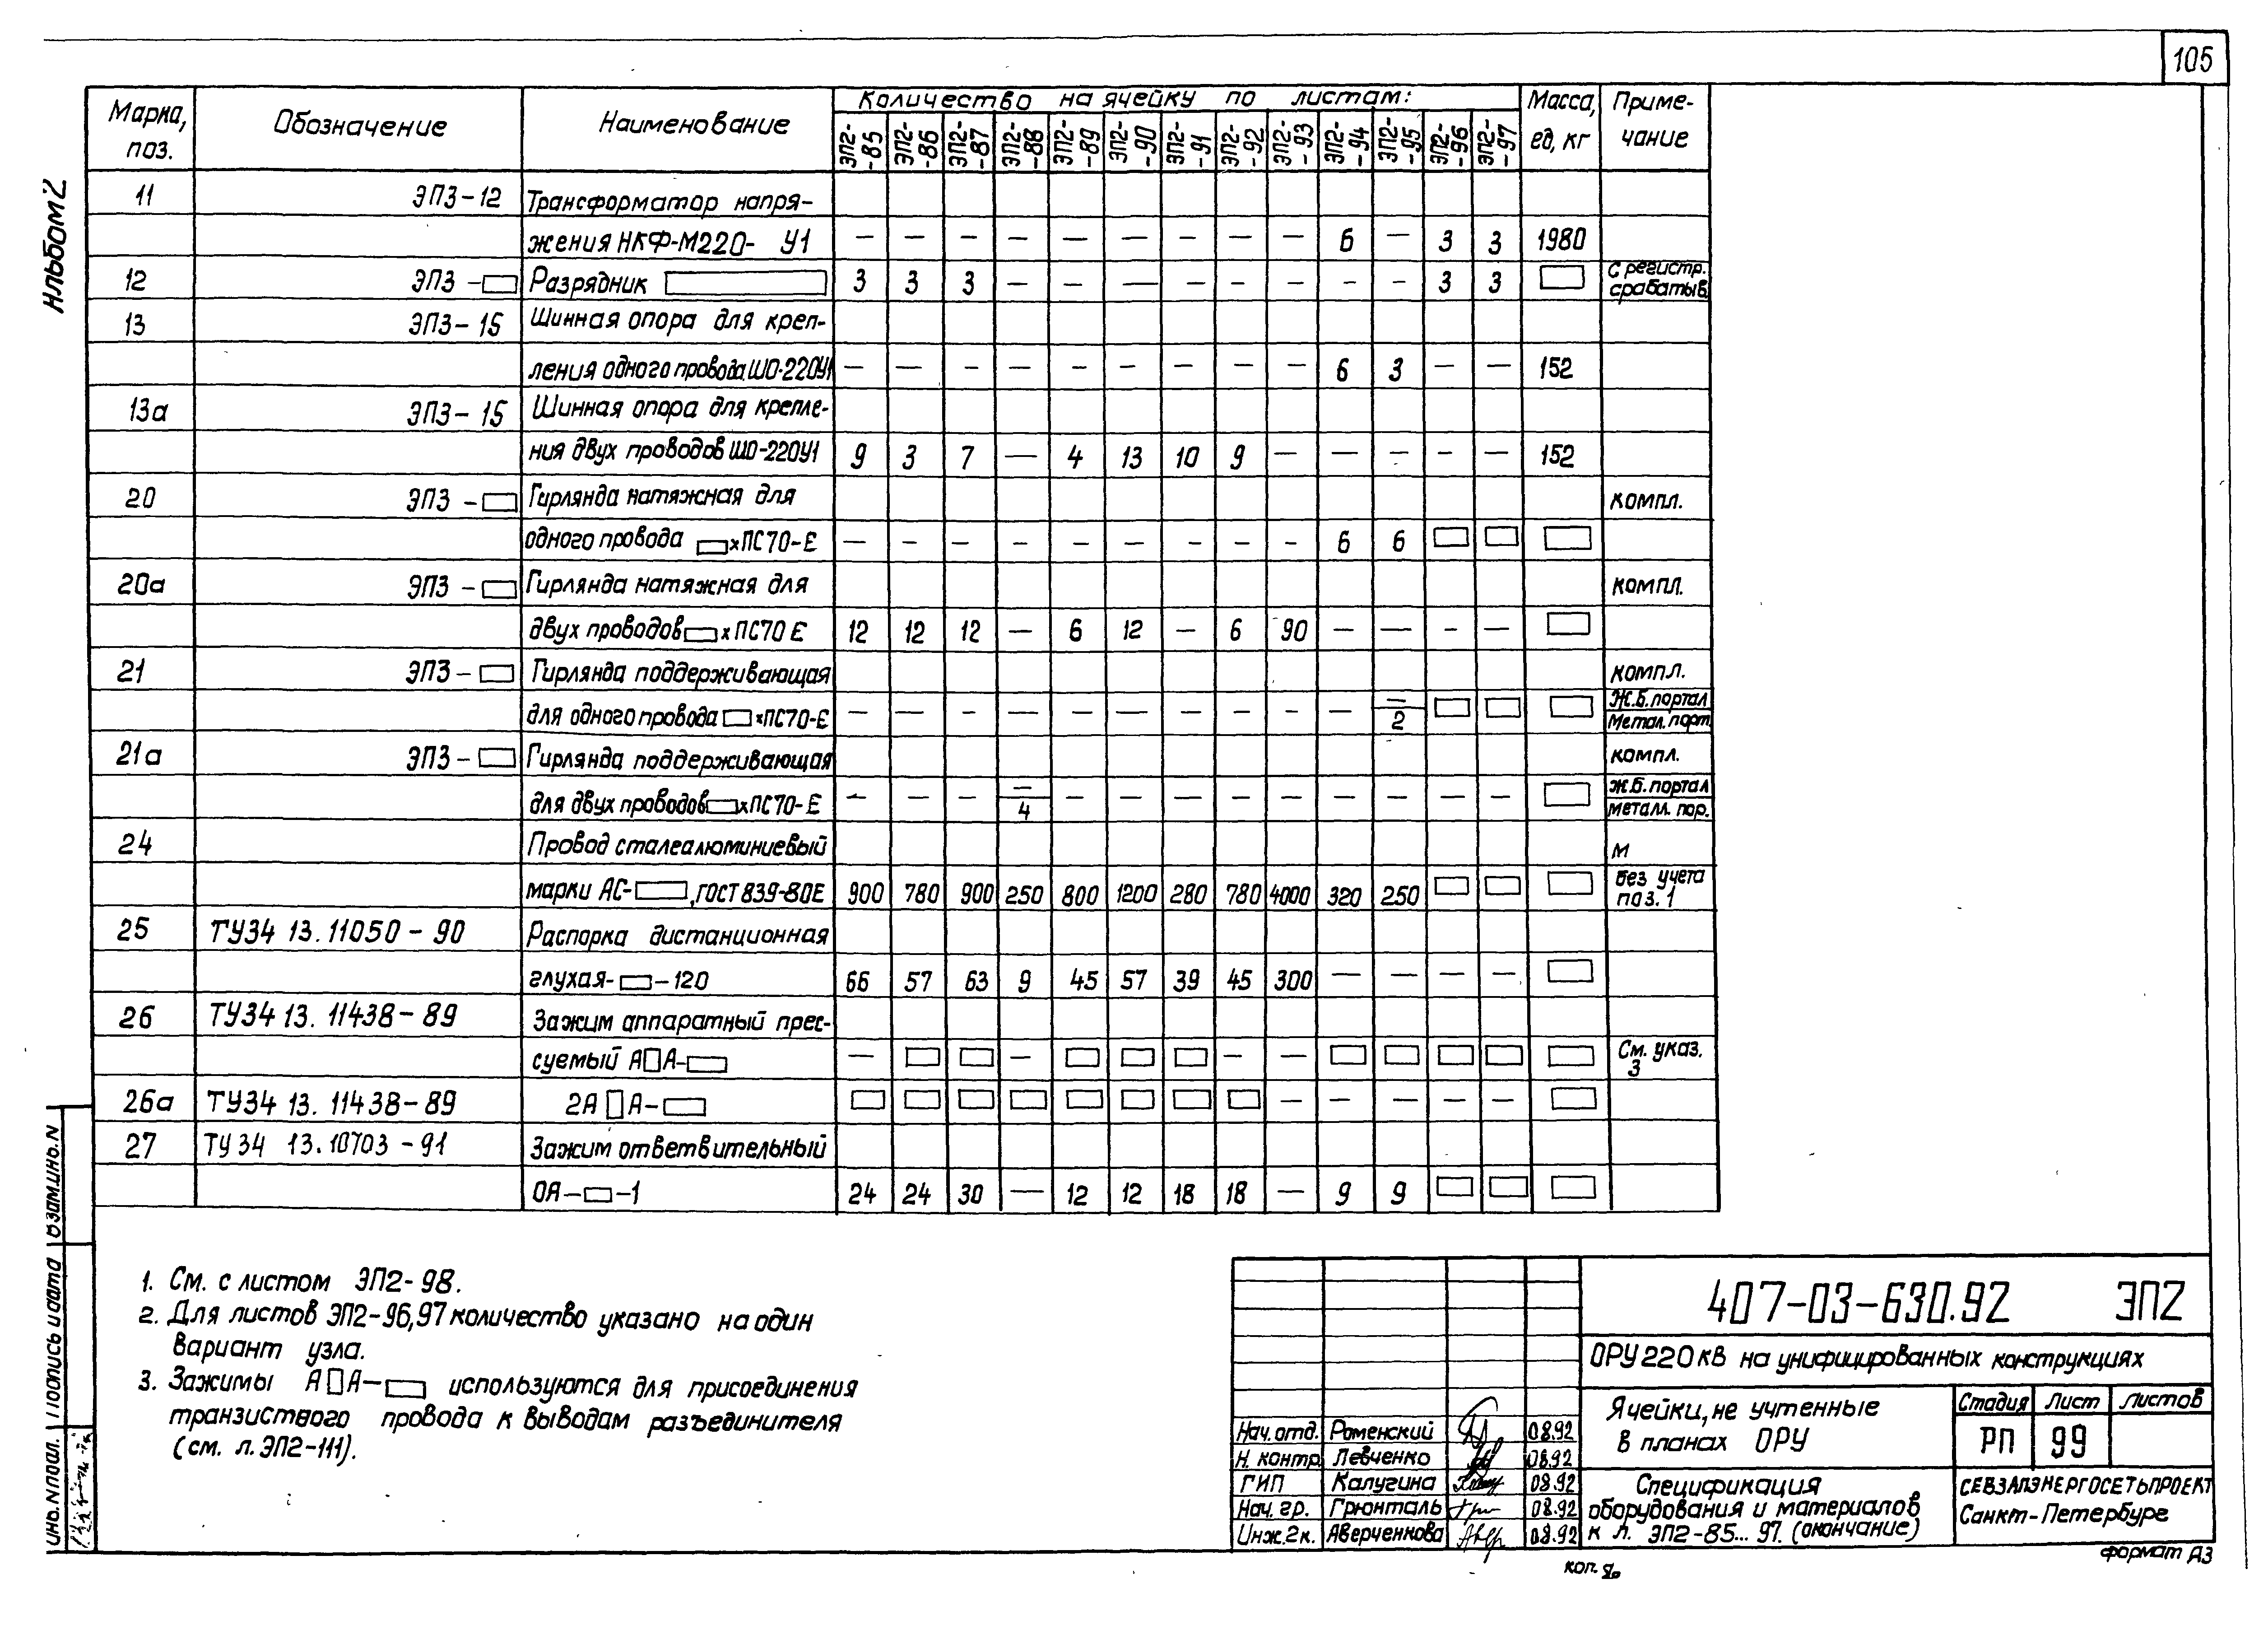 105
Альбом 2
Марка, поз. Обозначение Наименование Количество на ячейку по листам: Масса, ед, кг Приме-чание
ЭП2-85 ЭП2-86 ЭП2-87 ЭП2-88 ЭП2-89 ЭП2-90 ЭП2-91 ЭП2-92 ЭП2-93 ЭП2-94 ЭП2-95 ЭП2-96 ЭП2-97
11 ЭП3-12 Трансформатор напря-
жения НКФ-М220- У1 — — — — — — — — — 6 — 3 3 1980
12 ЭП3-□ Разрядник □ 3 3 3 — — — — — — — — 3 3 □ с регистр. срабатыв.
13 ЭП3-15 Шинная опора для креп-
ления одного провода ШО-220У1 — — — — — — — — — 6 3 — — 152
13а ЭП3-15 Шинная опора для крепле-
ния двух проводов ШО-220У1 9 3 7 — 4 13 10 9 — — — — — 152
20 ЭП3-□ Гирлянда натяжная для компл.
одного провода □хПС70-Е — — — — — — — — — 6 6 □ □ □
20а ЭП3-□ Гирлянда натяжная для компл.
двух проводов □хПС70Е 12 12 12 — 6 12 — 6 90 — — — — □
21 ЭП3-□ Гирлянда поддерживающая компл.
для одного провода □хПС70-Е — — — — — — — — — — —/2 □ □ □ Ж.б. портал / Метал. порт.
21а ЭП3-□ Гирлянда поддерживающая компл.
для двух проводов □хПС70-Е — — — —/4 — — — — — — — — — □ ж.б. портал / металл. пор.
24 Провод сталеалюминиевый м
марки АС-□, ГОСТ 839-80Е 900 780 900 250 800 1200 280 780 4000 320 250 □ □ □ без учета поз. 1
25 ТУ34 13.11050-90 Распорка дистанционная
глухая-□-120 66 57 63 9 45 57 39 45 300 — — — — □
26 ТУ34 13.11438-89 Зажим аппаратный прес-
суемый А□А-□ — □ □ — □ □ □ — — □ □ □ □ □ См. указ. 3
26а ТУ34 13.11438-89 2А□А-□ □ □ □ □ □ □ □ □ — — — — — □
27 ТУ34 13.10703-91 Зажим ответвительный
ОА-□-1 24 24 30 — 12 12 18 18 — 9 9 □ □ □
1. См. с листом ЭП2-98.
2. Для листов ЭП2-96,97 количество указано на один
вариант узла.
3. Зажимы А□А-□ используются для присоединения
транзистного провода к выводам разъединителя
(см. л. ЭП2-111).
407-03-630.92 ЭП2
ОРУ 220 кВ на унифицированных конструкциях
Ячейки, не учтенные
в планах ОРУ
Стадия Лист Листов
РП 99
Нач. отд. Роменский 08.92
Н. контр. Левченко 08.92
ГИП Калугина 08.92
Нач. гр. Грюнталь 08.92
Инж. 2к. Аверченкова 08.92
Спецификация
оборудования и материалов
к л. ЭП2-85... 97. (окончание)
СЕВЗАПЭНЕРГОСЕТЬПРОЕКТ
Санкт-Петербург
коп.
формат А3
Инв. N подл. Подпись и дата Взам. инв. N